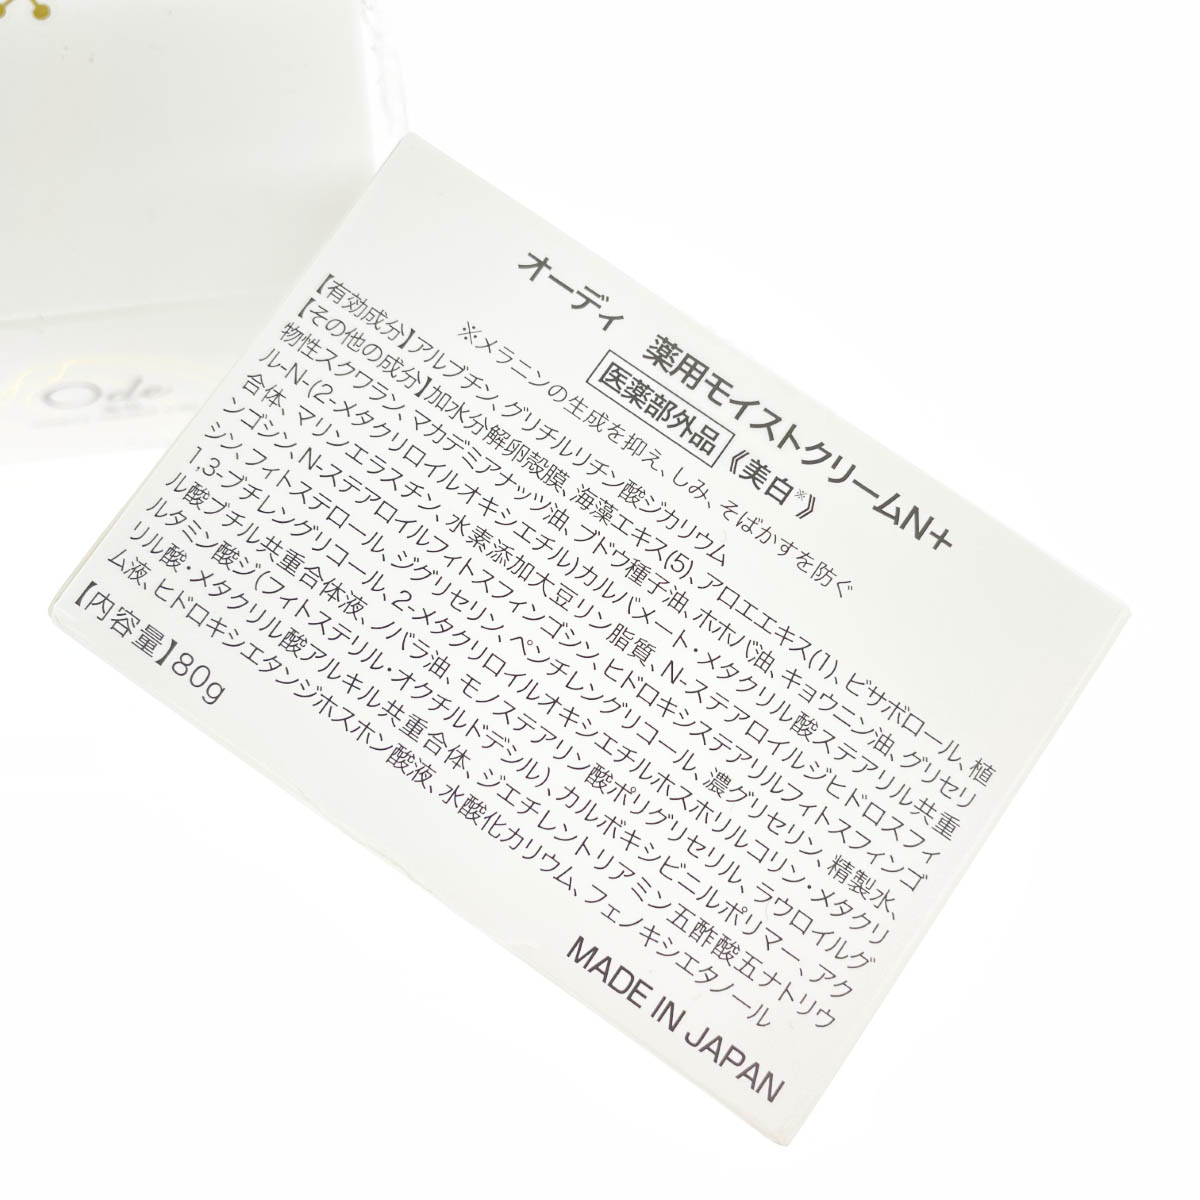 Ode
オーディ 薬用モイストクリームN+
医薬部外品《美白※》
※メラニンの生成を抑え、しみ、そばかすを防ぐ
【有効成分】アルブチン、グリチルリチン酸ジカリウム
【その他の成分】加水分解卵殻膜、海藻エキス(5)、アロエエキス(1)、ビサボロール、植
物性スクワラン、マカデミアナッツ油、ブドウ種子油、ホホバ油、キョウニン油、グリセリ
ル-N-(2-メタクリロイルオキシエチル)カルバメート・メタクリル酸ステアリル共重
合体、マリンエラスチン、水素添加大豆リン脂質、N-ステアロイルジヒドロスフィ
ンゴシン、N-ステアロイルフィトスフィンゴシン、ヒドロキシステアリルフィトスフィンゴ
シン、フィトステロール、ジグリセリン、ペンチレングリコール、濃グリセリン、精製水、
1,3-ブチレングリコール、2-メタクリロイルオキシエチルホスホリルコリン・メタクリ
ル酸ブチル共重合体液、ノバラ油、モノステアリン酸ポリグリセリル、ラウロイルグ
ルタミン酸ジ(フィトステリル・オクチルドデシル)、カルボキシビニルポリマー、アク
リル酸・メタクリル酸アルキル共重合体、ジエチレントリアミン五酢酸五ナトリウ
ム液、ヒドロキシエタンジホスホン酸液、水酸化カリウム、フェノキシエタノール
【内容量】80g
MADE IN JAPAN